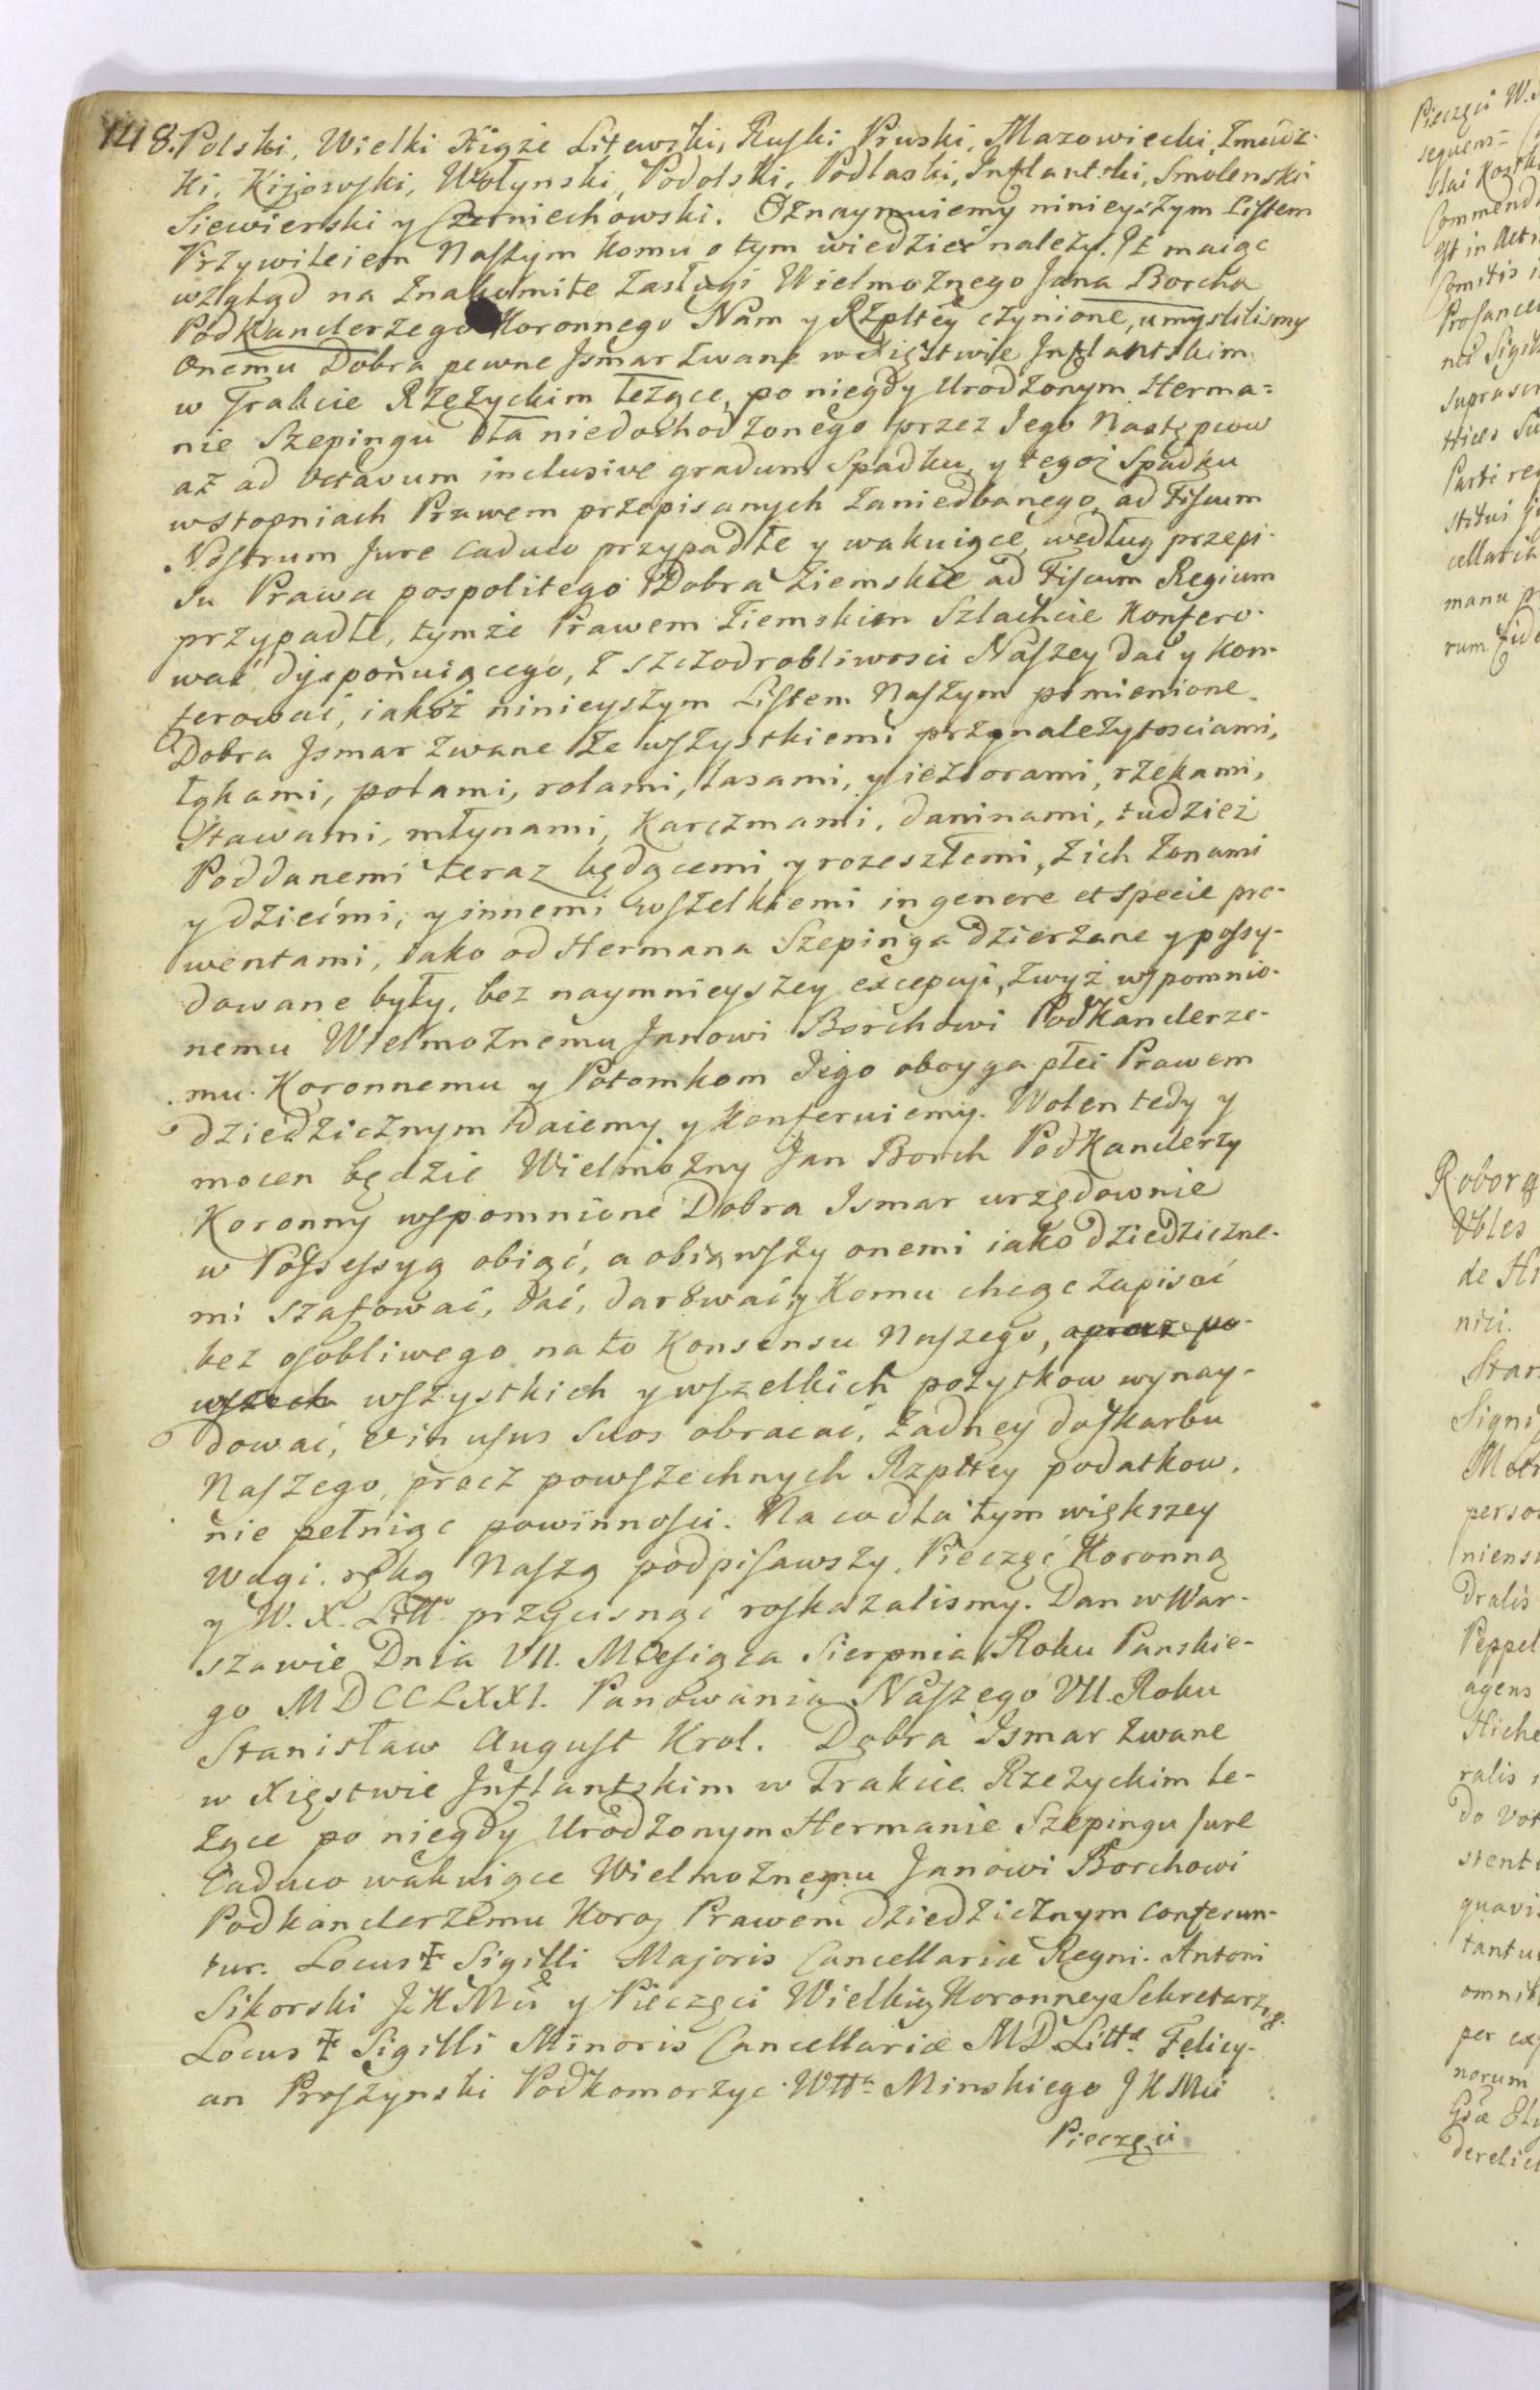 148. Polski, Wielki Xiąże Litewski, Ruski Pruski, Mazowiecki, Żmudz-
ki, Kijowski, Wołynski, Podolski, Podlaski, Inflantski, Smolenski
Siewierski y Czerniechowski. Oznaymuiemy ninieyszym Listem
Przywileiem Naszym komu o tym wiedzieć należy. Iż maiąc
wzgląd na znakomite zasługi Wielmożnego Jana Borcha
Podkanclerzego Koronnego Nam y Rzpltey czynione, umyslilismy
onemu Dobra pewne Ismar zwane w Xięstwie Inflantskim
w Trakcie Rzeżyckim leżące, po niegdy Urodzonym Herma=
nie Szepingu dla niedochodzonego przez Jego Następcow
aż ad octavum inclusive gradum Spadku, y tegoż Spadku
w stopniach Prawem przepisanych zaniedbanego, ad Fiscum
Nostrum Jure caduco przypadłe y wakuiące, według przepi-
su Prawa pospolitego Dobra Ziemskie ad Fiscum Regium
przypadłe, tymże Prawem Ziemskim Szlachcie konfero-
wać dysponuiącego, z szczodrobliwosci Naszey dać y kon-
ferować, iakoż ninieyszym Listem Naszym pomienione
Dobra Ismar zwane ze wszystkiemi przynależytosciami,
łąkami, polami, rolami, lasami, y ieziorami, rzekami,
stawami, młynami, karczmami, daninami, tudzież
Poddanemi teraz będącemi y rozeszłemi, z ich żonami
y dziećmi, y innemi wszelkiemi in genere et specie pro-
wentami, iako od Hermana Szepinga dzierżane y possy-
dowane były, bez naymnieyszey excepcyi, zwyż wspomnio-
nemu Wielmożnemu Janowi Borchowi Podkanclerze-
mu Koronnemu y Potomkom Jego oboyga płci Prawem
dziedzicznym daiemy y konferuiemy. Wolen tedy y
mocen będzie Wielmożny Jan Borch Podkanclerzy
Koronny wspomnione Dobra Ismar urzędownie
w Possessyą obiąć, a obiąwszy onemi iako dziedziczne-
mi szafować, dać, darować, y komu chcąc zapisać
bez osobliwego na to Konsensu Naszego, oprocz po-
wszech wszystkich y wszelkich pożytkow wynay-
dować, et in usus suos obracać, żadney do skarbu
Naszego, procz powszechnych Rzpltey podatkow,
nie pełniąc powinnosci. Na co dla tym większey
wagi, ręką Naszą podpisawszy, Pieczęć Koronną
y W. X. Litt. przycisnąć roskazalismy. Dan w War-
szawie Dnia VII. Miesiąca Sierpnia Roku Panskie-
go MDCCLXXI. Panowania Naszego VII. Roku
Stanisław August Krol. Dobra Ismar zwane
w Xięstwie Inflantskim w Trakcie Rzeżyckim le-
żące po niegdy Urodzonym Hermanie Szepingu Jure
Caduco wakuiące Wielmożnemu Janowi Borchowi
Podkanclerzemu Koro. Prawem dziedzicznym conferun-
tur. Locus ‡ Sigilli Majoris Cancellariæ Regni. Antoni
Sikorski J K Mci y Pieczęci Wielkiey Koronney Sekretarz.
Locus ‡ Sigilli Minoris Cancellariæ M D Litt. Felicy-
an Proszynski Podkomorzyc Wtta Minskiego J K Mci
Pieczęci